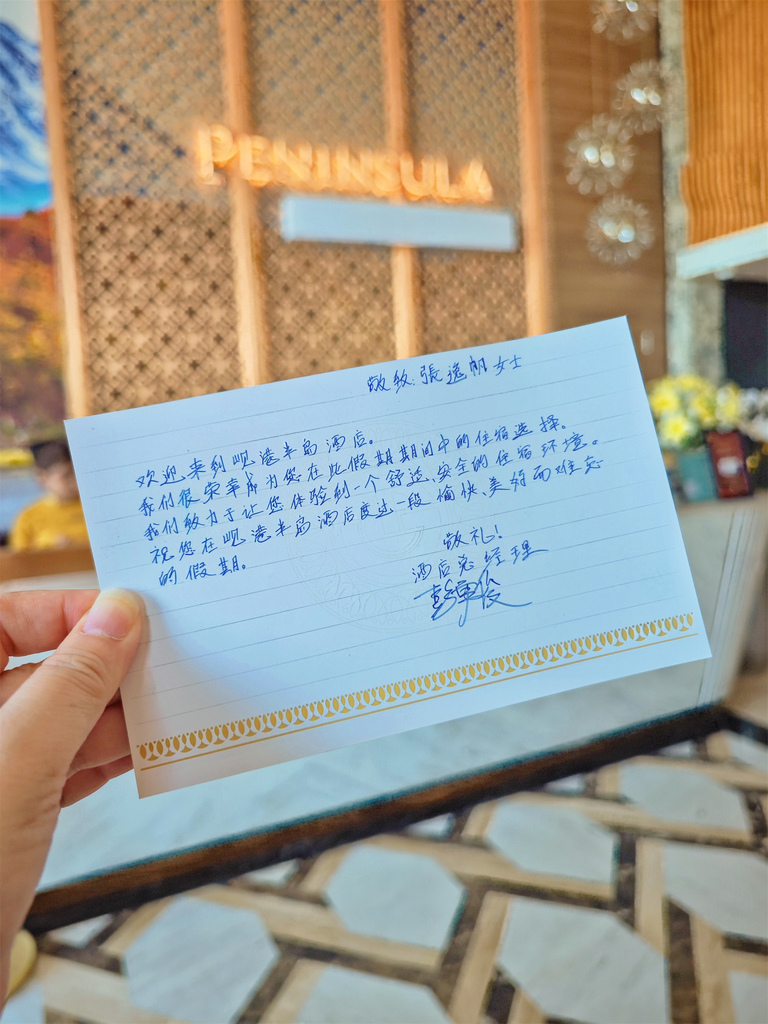 PENINSULA
敬致:張逸帆女士
欢迎来到岘港半岛酒店。
我们很荣幸成为您在此假期期间中的住宿选择。
我们致力于让您体验到一个舒适、安全的住宿环境。
祝您在岘港半岛酒店度过一段愉快、美好而难忘
的假期。
敬礼!
酒店总经理